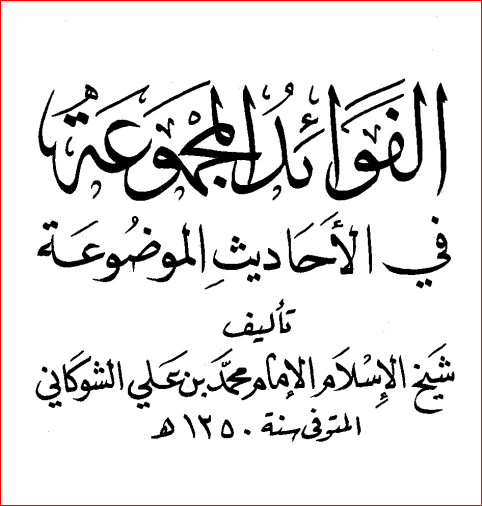 الفَوَائِدُ المَجْمُوعَة
في الأَحَاديثِ الموضُوعَة
تأليف
شَيخ الإِسْلَام الإمام محمَّد بن عَلي الشوكاني
المتوفى سنة ١٢٥٠ هـ